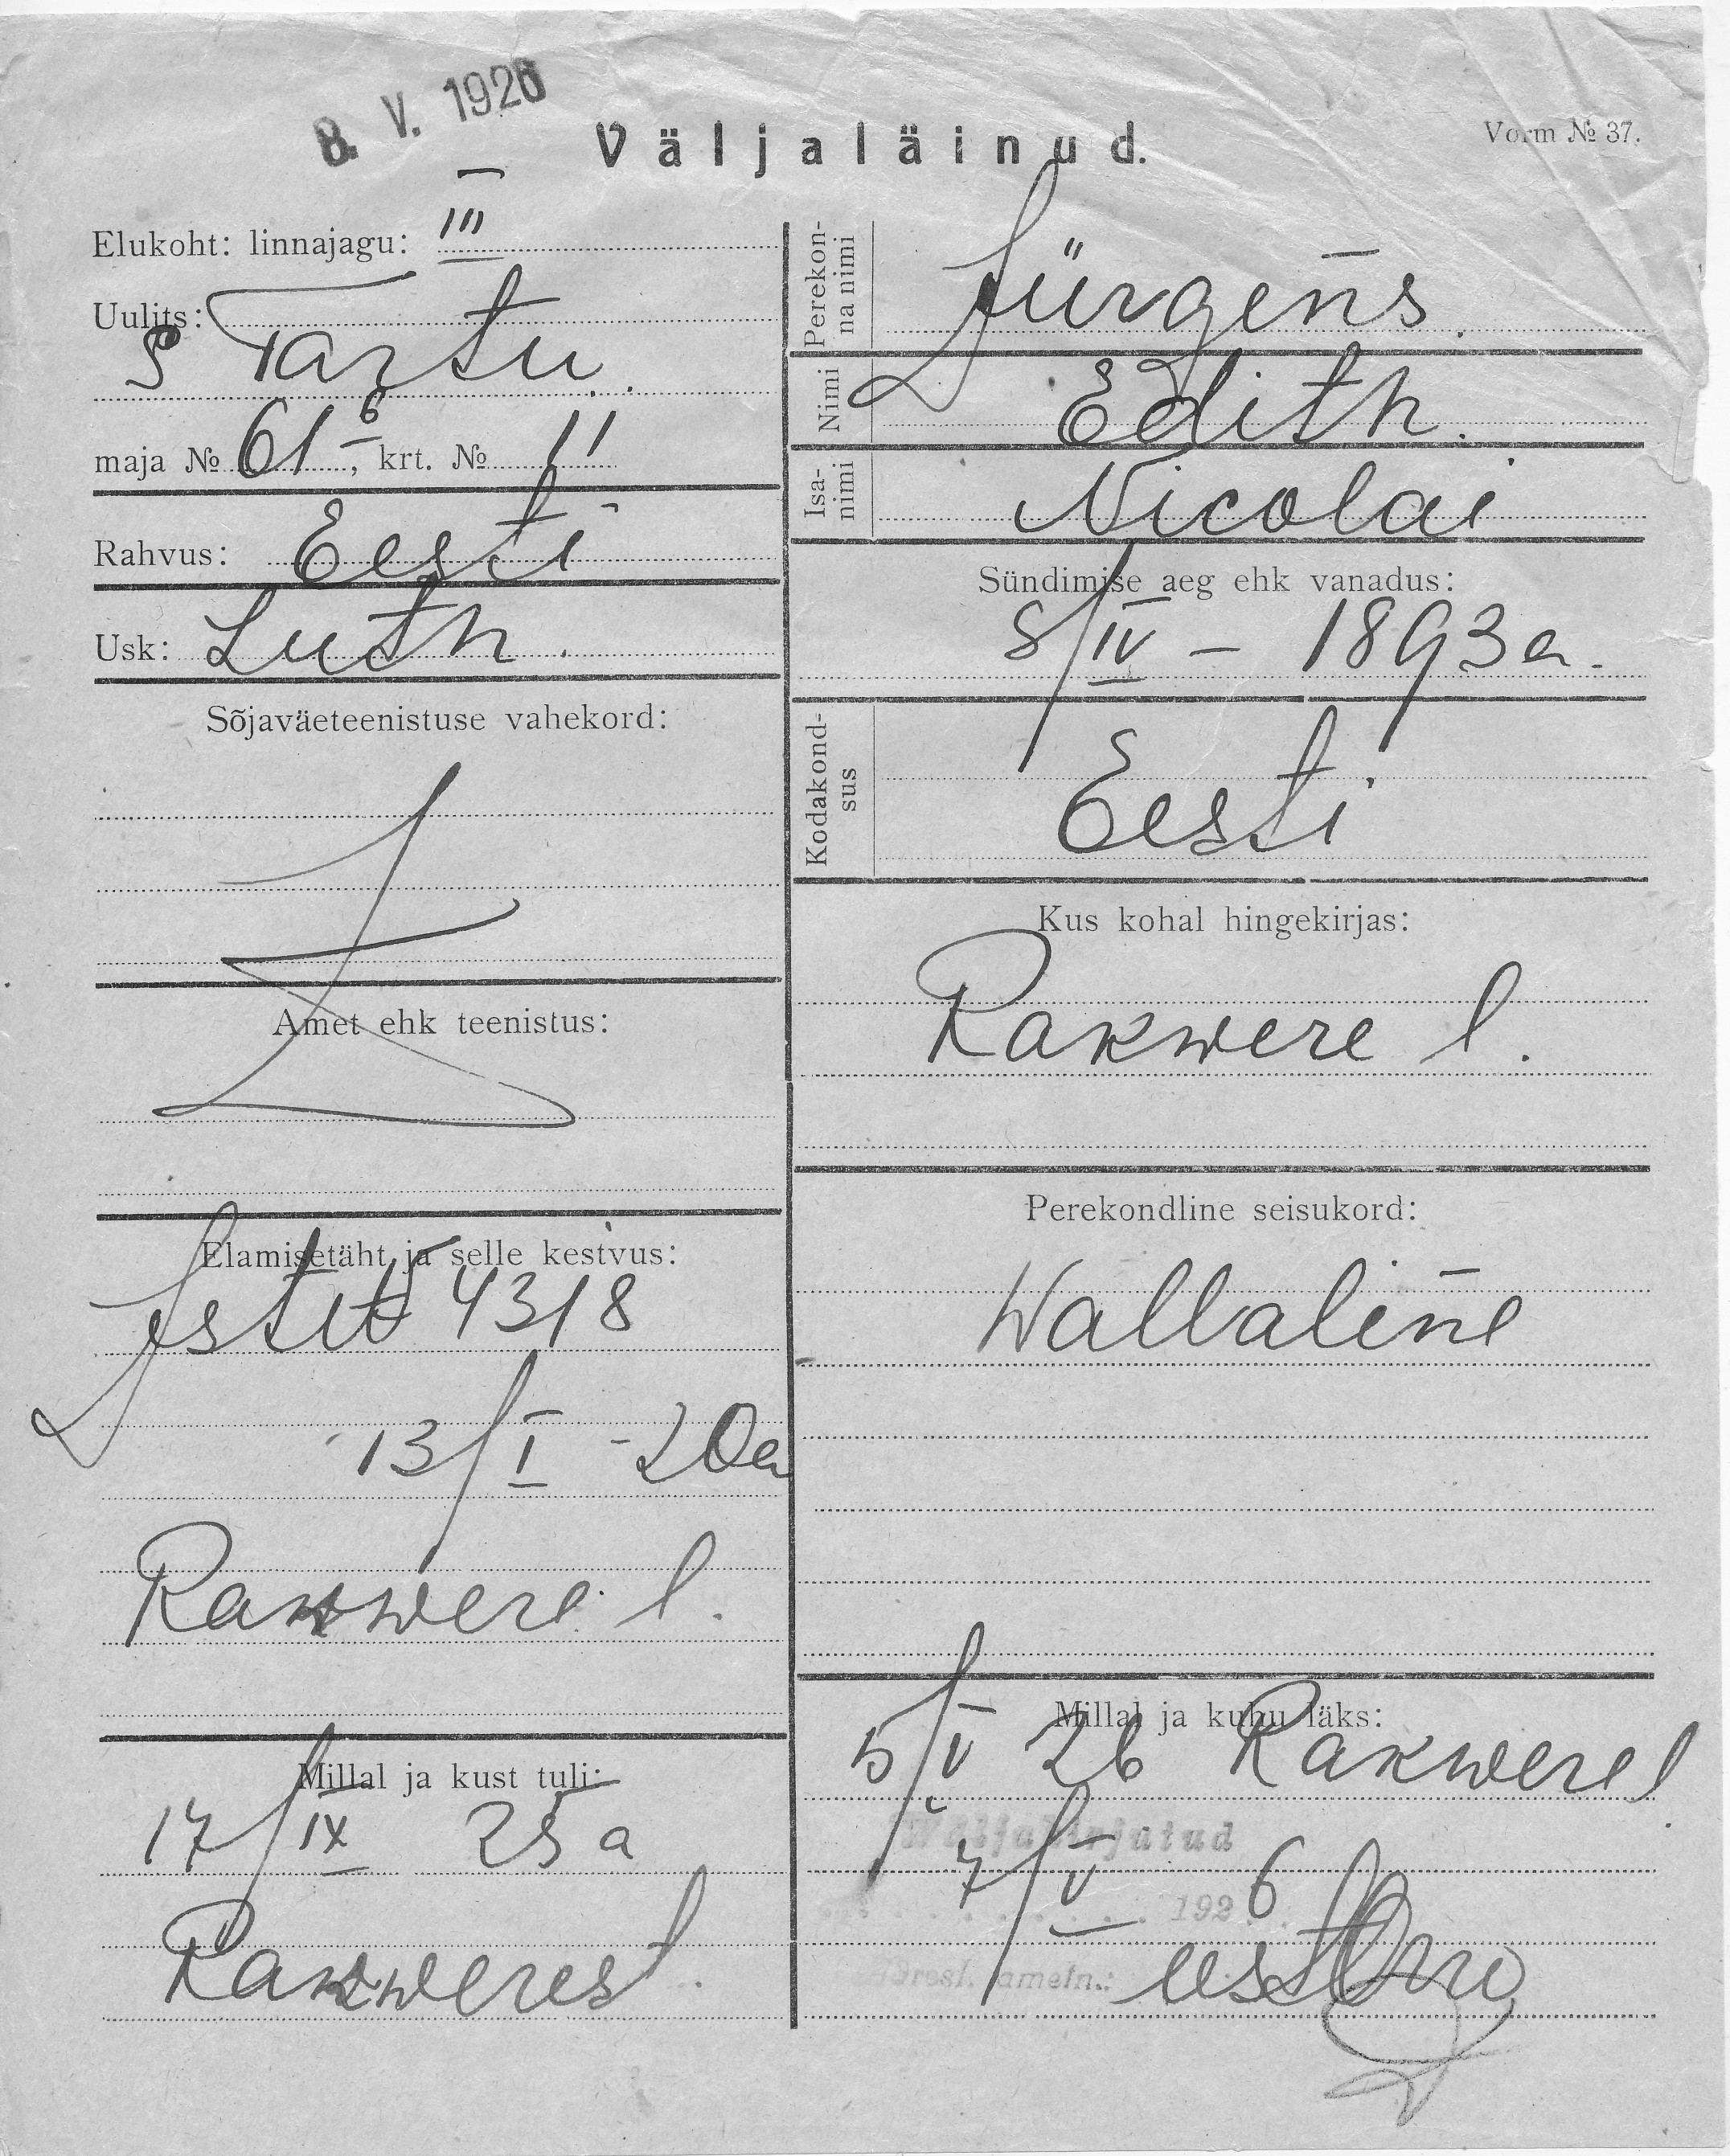 8. V. 1926
Väljaläinud.
Vorm № 37.
Elukoht: linnajagu: III
Uulits:
S Tartu.
maja № 61-6, krt. № 11
Rahvus: Eesti
Usk: Luth.
Sõjaväeteenistuse vahekord:
Amet ehk teenistus:
Elamisetäht ja selle kestvus:
4318
13/I - 20a
Rakwere l.
Millal ja kust tuli:
17/IX 25 a
Rakwerest.
Perekonna nimi
Jürgens.
Nimi
Edith.
Isanimi
Nicolai
Sündimise aeg ehk vanadus:
8/IV - 1893 a.
Kodakondsus
Eesti
Kus kohal hingekirjas:
Rakwere l.
Perekondline seisukord:
Wallaline
Millal ja kuhu läks:
5/V 26 Rakwere l.
Väljakirjutud
7/V 1926
Adresl. ametn.: